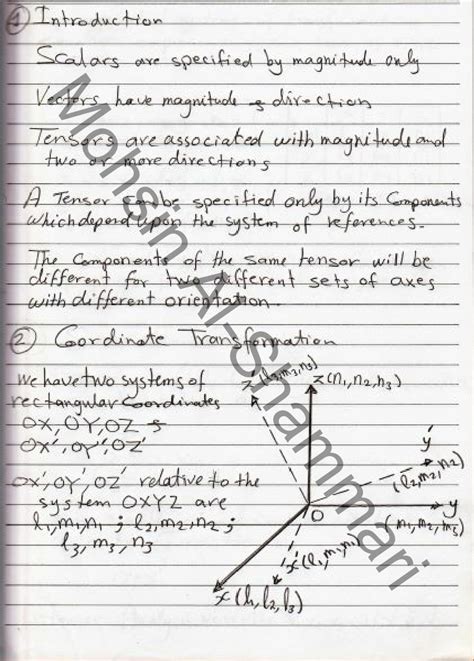 ① Introduction
Scalars are specified by magnitude only
Vectors have magnitude & direction
Tensors are associated with magnitude and
two or more directions
A Tensor can be specified only by its Components
which depend upon the system of references.
The Components of the same tensor will be
different for two different sets of axes
with different orientation.
② Coordinate Transformation
we have two systems of
rectangular Coordinates
OX, OY, OZ &
OX', OY', OZ'
OX', OY', OZ' relative to the
system OXYZ are
l₁, m₁, n₁ ; l₂, m₂, n₂ ;
l₃, m₃, n₃
z' (l₃, m₃, n₃)
z (n₁, n₂, n₃)
y'
(l₂, m₂, n₂)
O
y
(m₁, m₂, m₃)
x' (l₁, m₁, n₁)
x (l₁, l₂, l₃)
Mohsin Al-Shammari